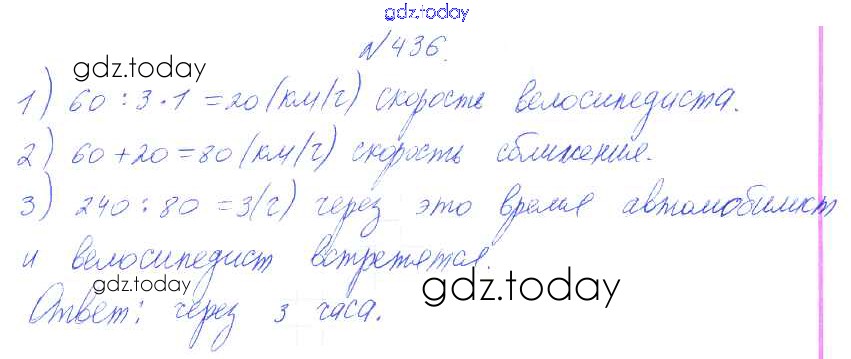 gdz.today
№436.
gdz.today
1) 60 : 3 · 1 = 20 (км/г) скорость велосипедиста.
gdz.today
2) 60 + 20 = 80 (км/г) скорость сближения.
3) 240 : 80 = 3 (г) через это время автомобилист
и велосипедист встретятся.
gdz.today
gdz.today
Ответ: через 3 часа.